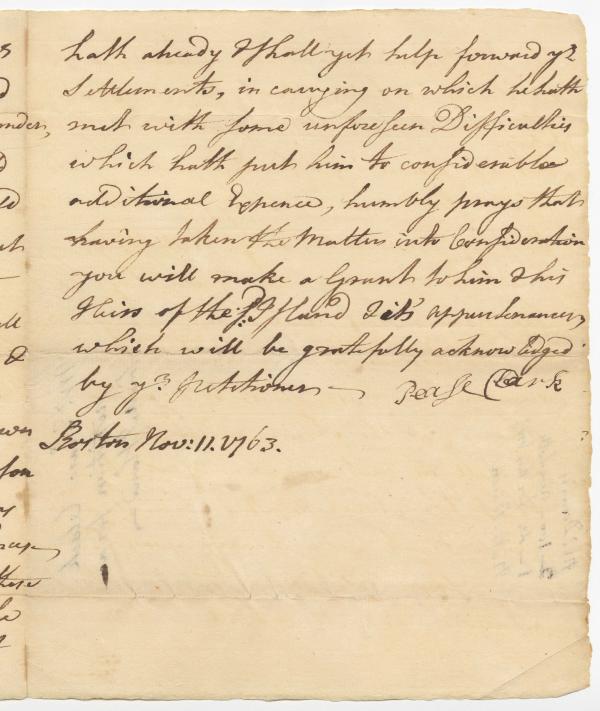 hath already & shall yet help forward yr
Settlements, in carrying on which he hath
met with some unforeseen Difficulties
which hath put him to considerable
additional Expence, humbly prays that
having taken the Matter into Consideration
you will make a Grant to him & his
Heirs of the sd. Island & it's appurtenances
which will be gratefully acknowledged
by yr. Petitioner —
Pease Clark
Boston Nov: 11. 1763.